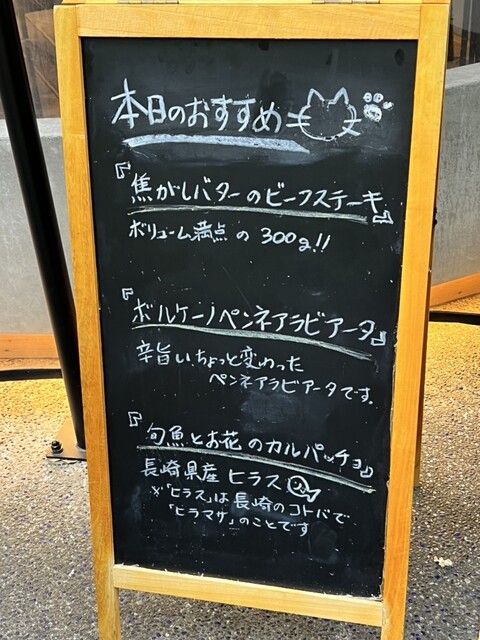 本日のおすすめ
『焦がしバターのビーフステーキ』
ボリューム満点の 300g!!
『ボルケーノペンネアラビアータ』
辛旨い、ちょっと変わった
ペンネアラビアータです。
『旬魚とお花のカルパッチョ』
長崎県産 ヒラス
※「ヒラス」は長崎のコトバで
「ヒラマサ」のことです